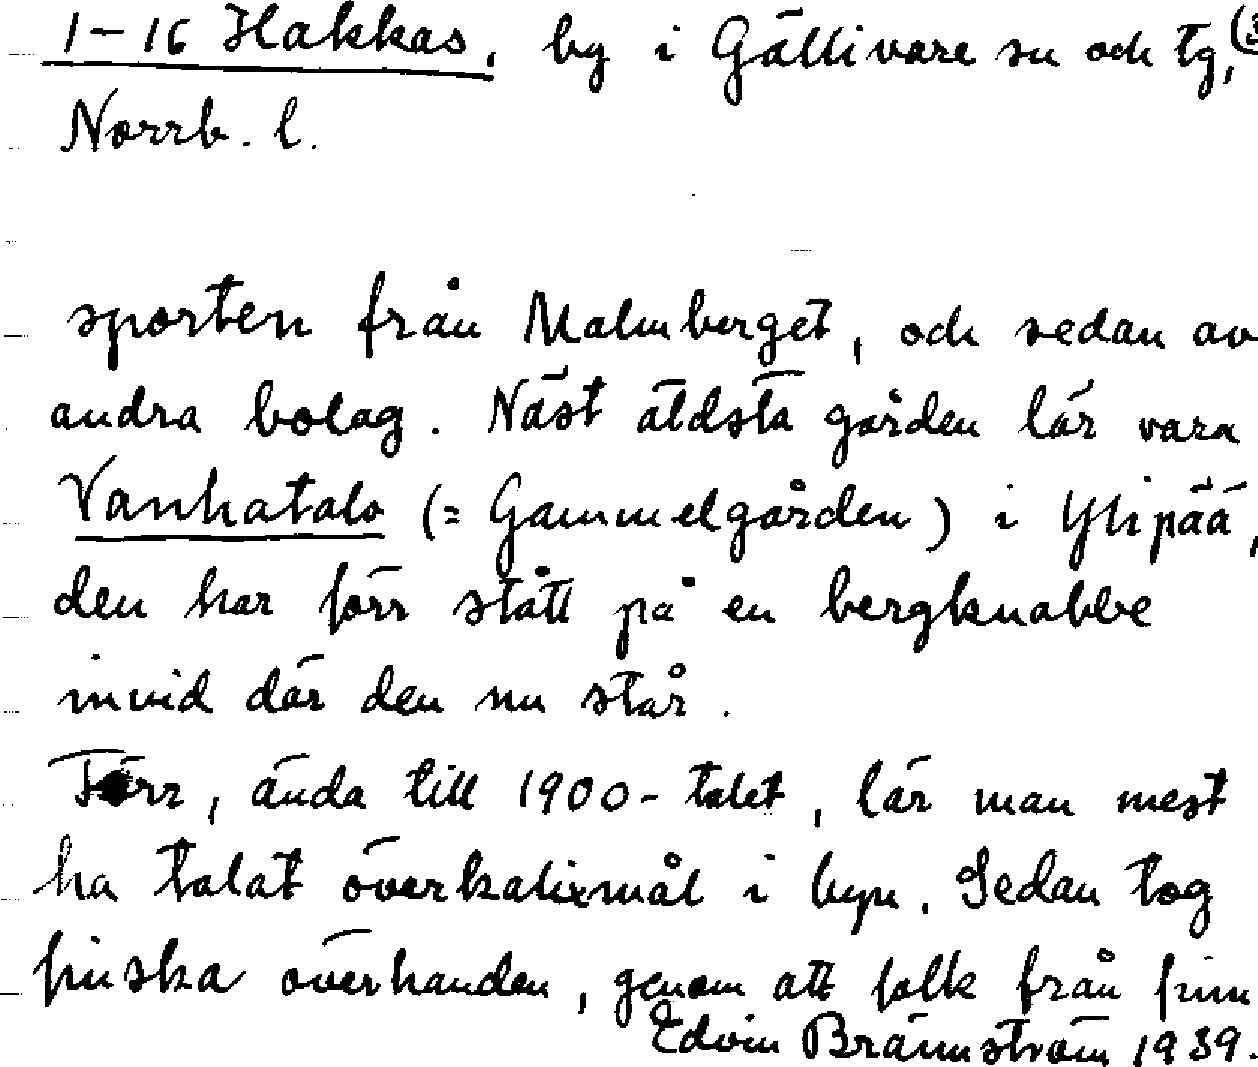 1-16 Hakkas, by i Gällivare sn och tg, (3
Norrb. l.
sporten från Malmberget, och sedan av
andra bolag. Näst äldsta gården lär vara
Vanhatalo (= Gammelgården) i Ylipää,
den har förr stått på en bergknabbe
invid där den nu står.
Förr, ända till 1900-talet, lär man mest
ha talat överkalixmål i byn. Sedan tog
finska överhanden, genom att folk från finn
Edvin Brännström 1939.